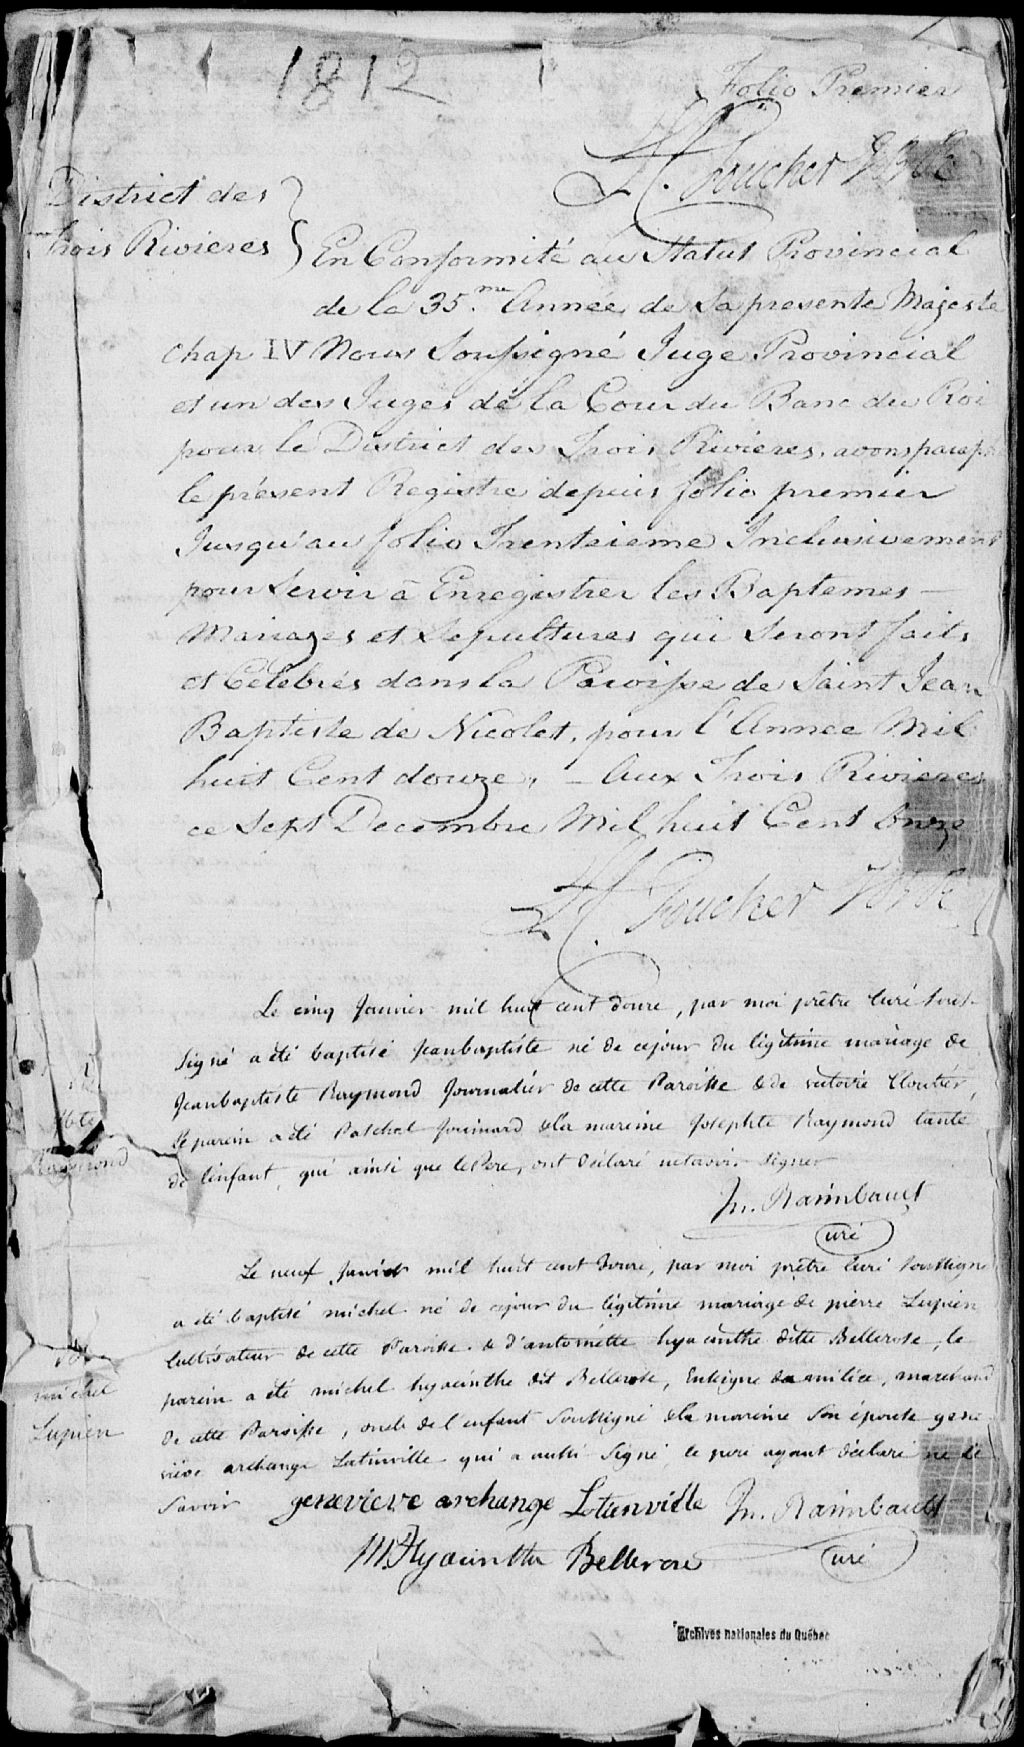 1812
Folio Premier
L. C. Foucher
District des
Trois Rivieres } En Conformité au Statut Provincial
de la 35.me Année de Sa presente Majesté
Chap IV Nous Soussigné Juge Provincial
et un des Juges de la Cour du Banc du Roi
pour le District des Trois Rivieres, avons paraphé
le présent Registre depuis folio premier
Jusqu'au folio Trentieme Inclusivement
pour Servir à Enregistrer les Baptemes —
Mariages et Sepultures qui Seront faits
et Célebrés dans la Paroisse de Saint Jean
Baptiste de Nicolet, pour l'Année Mil
huit Cent douze, — Aux Trois Rivieres
ce Sept Decembre Mil huit Cent Onze
L. C. Foucher
Le cinq Janvier mil huit cent douze, par moi prêtre Curé sous-
signé a été baptisé Jeanbaptiste né de cejour du légitime mariage de
Jeanbaptiste Raymond Journalier de cette Paroisse & de victoire Cloutier,
le parein a été Paschal Jouinard & la mareine Josephte Raymond tante
de l'enfant, qui ainsi que le Pere, ont déclaré ne savoir signer
Raimbault
Curé
B
Bte
Raymond
Le neuf Janvier mil huit cent douze, par moi prêtre Curé soussigné
a été baptisé michel né de cejour du légitime mariage de pierre Lupien
Cultivateur de cette Paroisse & d'antoinette hyacinthe ditte Bellerose, le
parein a été michel hyacinthe dit Bellerose, Enseigne de milice, marchand
de cette Paroisse, oncle de l'enfant soussigné & la mareine son épouse gene-
viève archange Lotinville qui a aussi signé le pere ayant déclaré ne le
savoir genevieve archange Lotinville Raimbault
M Hyacinthe Bellerose Curé
michel
Lupien
Archives nationales du Québec